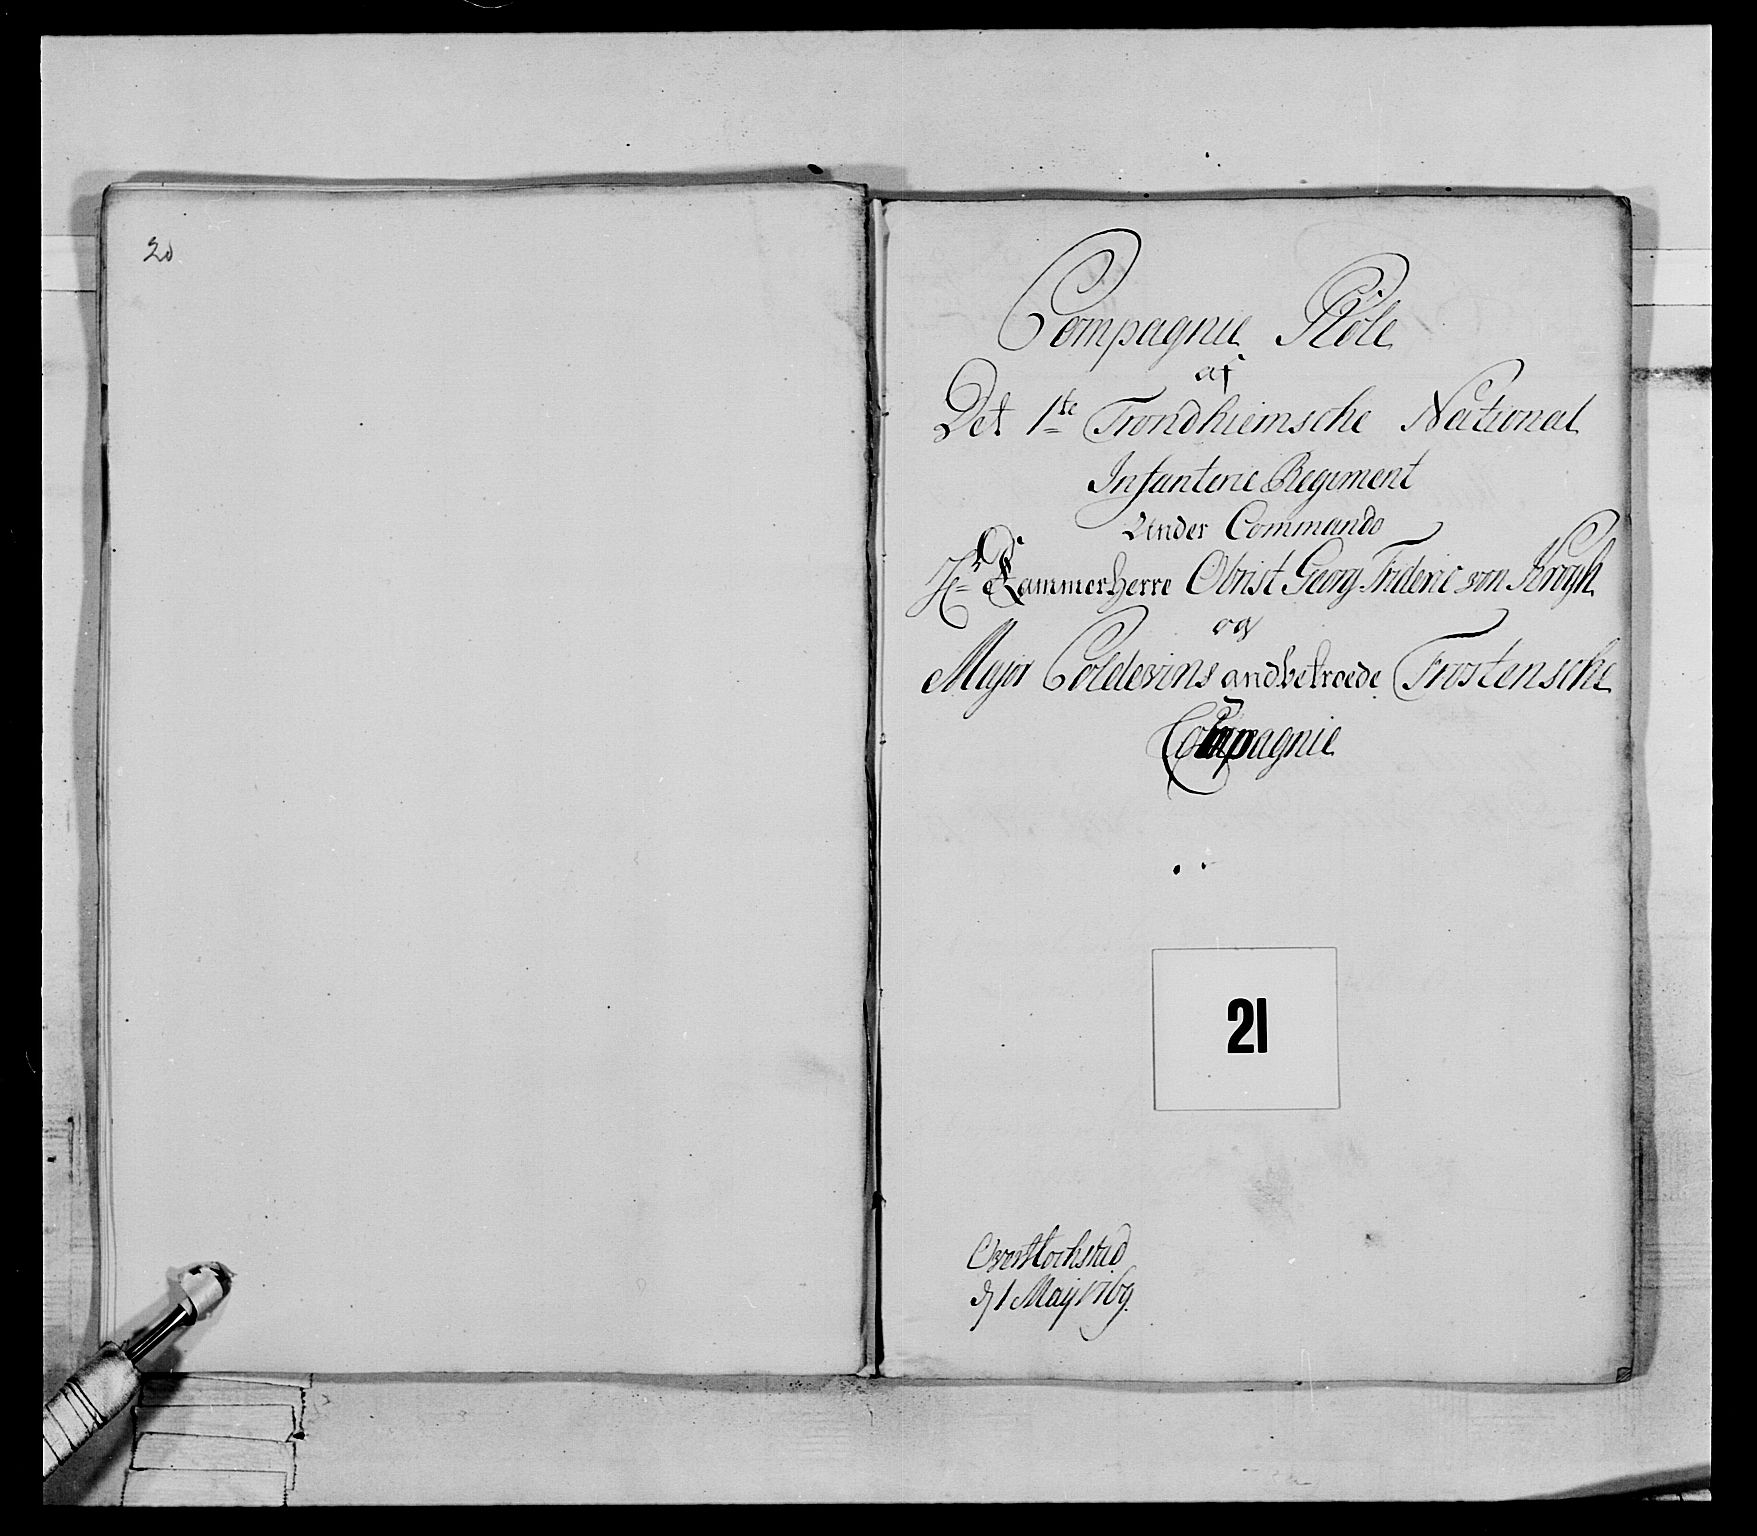 20
Compagnie Role
af
Det 1te Trondhiemsche National
Infanterie Regiment
Under Commando
Hr Kammerherre Obrist Georg Frideric von Krogh
og
Major Coldevins andbetroede Frostensche
Compagnie
21
OverHochstad
d 1 Maij 1769.